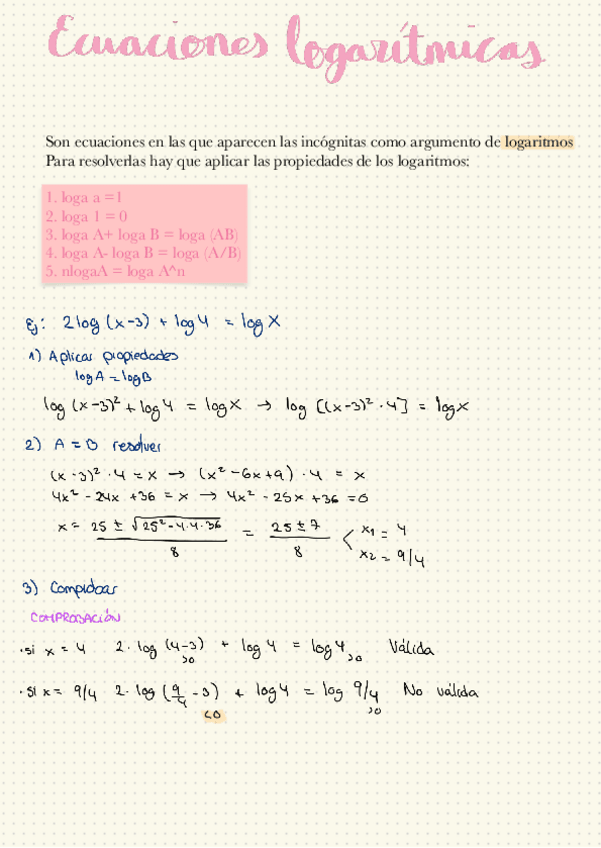 Ecuaciones logarítmicas
Son ecuaciones en las que aparecen las incógnitas como argumento de logaritmos
Para resolverlas hay que aplicar las propiedades de los logaritmos:
1. loga a =1
2. loga 1 = 0
3. loga A+ loga B = loga (AB)
4. loga A- loga B = loga (A/B)
5. nlogaA = loga A^n
Ej: 2log (x-3) + log 4 = log X
1) Aplicar propiedades
log A = log B
log (x-3)² + log 4 = log X → log [(x-3)² · 4] = log x
2) A = B resolver
(x-3)² · 4 = x → (x² - 6x + 9) · 4 = x
4x² - 24x + 36 = x → 4x² - 25x + 36 = 0
x = 25 ± √25² - 4·4·36 / 8 = 25 ± 7 / 8 < x1 = 4
x2 = 9/4
3) Comprobar
COMPROBACIÓN
· si x = 4 2· log (4-3) + log 4 = log 4 Válida
>0 >0
· si x = 9/4 2· log (9/4 - 3) + log 4 = log 9/4 No válida
<0 >0